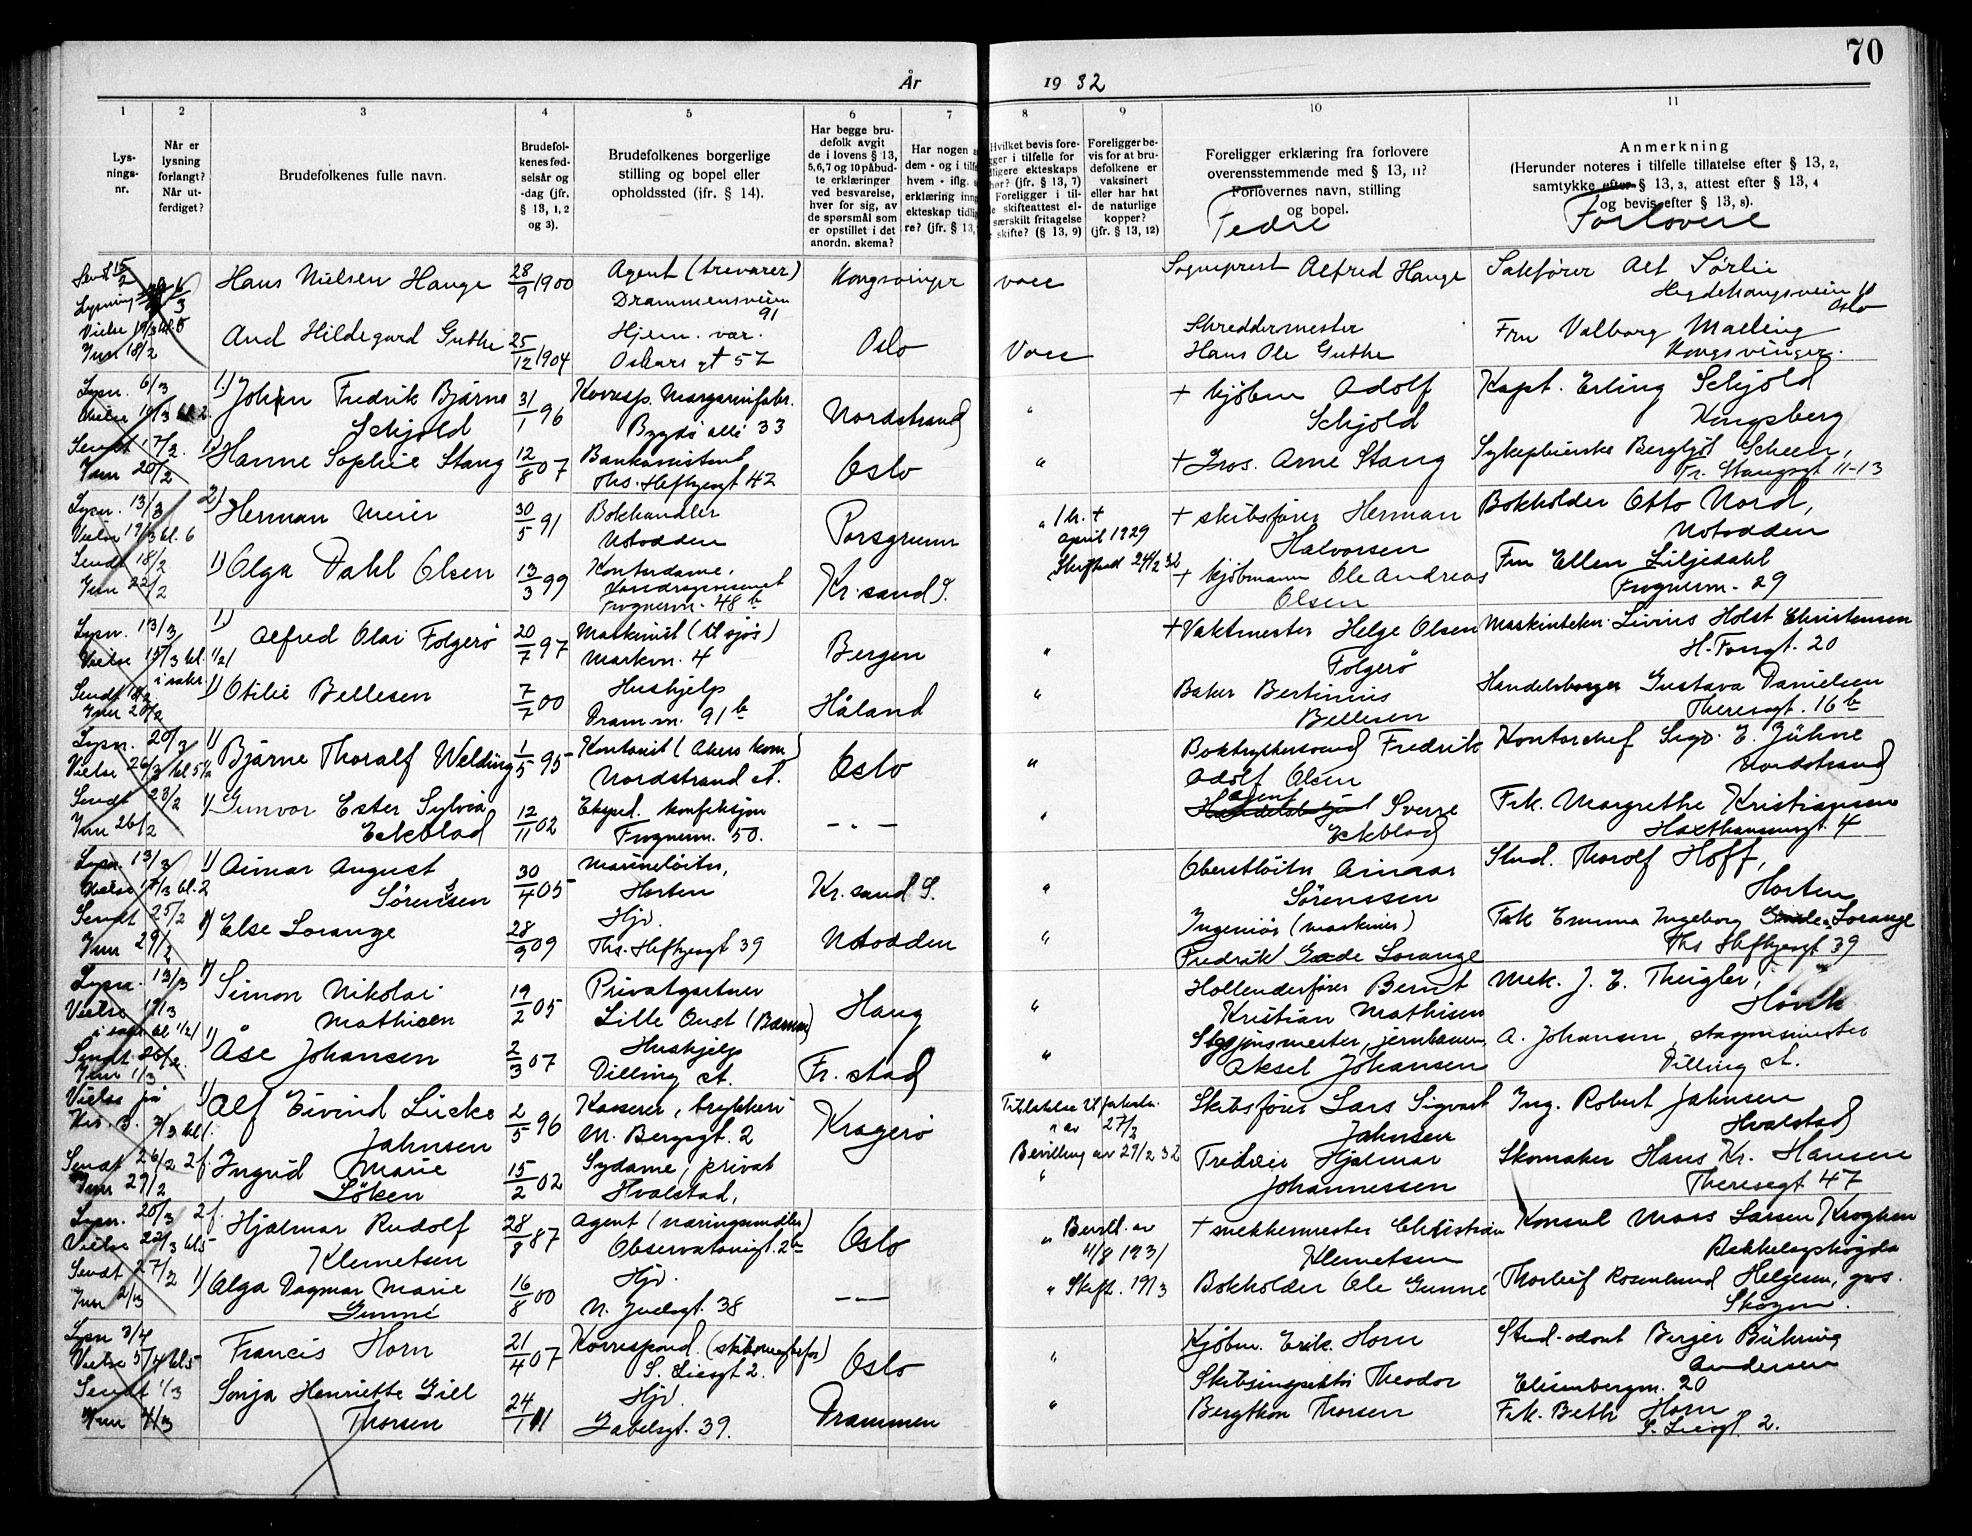 70
År 1932
1 2 3 4 5 6 7 8 9 10 11
Lys-
nings-
nr.
Når er
lysning
forlangt?
Når ut-
ferdiget?
Brudefolkenes fulle navn.
Brudefol-
kenes fød-
selsår og
-dag (jfr.
§ 13, 1, 2
og 3).
Brudefolkenes borgerlige
stilling og bopel eller
opholdssted (jfr. § 14).
Har begge bru-
defolk avgit
de i lovens § 13,
5, 6, 7 og 10 påbud-
te erklæringer
ved besvarelse,
hver for sig, av
de spørsmål som
er opstillet i det
anordn. skema?
Har nogen a
dem - og i tilf
hvem - iflg.
erklæring inng
ekteskap tidli
re? (jfr. § 13,
Hvilket bevis fore-
gger i tilfelle for
dligere ekteskaps
hør? (jfr. § 13, 7)
Foreligger i til-
e skifteattest el-
særskilt fritagelse
skifte? (§ 13, 9)
Foreligger be-
vis for at bru-
defolkene er
vaksinert
eller har hat
de naturlige
kopper?
(jfr. § 13, 12)
Foreligger erklæring fra forlovere
overensstemmende med § 13, 11?
Forlovernes navn, stilling
og bopel.
Fedre
Anmerkning
(Herunder noteres i tilfelle tillatelse efter § 13, 2,
samtykke efter § 13, 3, attest efter § 13, 4
og bevis efter § 13, 8).
Forlovere
Sendt 15/2
Hans Nielsen Hauge 28/9 1900 Agent (trevarer) Kongsvinger Sogneprest Alfred Hauge Sakfører Alf Sørlie
Drammensveien 91 Hegdehaugsveien 11 Oslo
Aud Hildegard Guthe 25/12 1904 Hjem. var. Oslo Skreddermester Fru Valborg Maeling
Inn 18/2 Oskars gt 57 Hans Ole Guthe Kongsvinger.
Lysn. 6/3 1) Johan Fredrik Bjarne 31/1 96 Korresp. Margarinfabr. Nordstrand " + Kjøbm Adolf Kapt. Erling Schjold
Schjold Bygdø allé 33 Schjold Kongsberg
Sendt 17/2. 1) Hanne Sophie Stang 12/8 07 Bankassistent Oslo " + Gros. Arne Stang Sykepleierske Bergljot Scheen,
Inn 20/2 Ths. Heftyesgt 42 Fr. Stangsgt 11-13
Lysn. 13/3 2) Herman Meier 30/5 91 Bokhandler Porsgrunn + skibsfører Herman Bokholder Otto Nord,
Vielse 19/3 kl. 6 Notodden april 1929 Halvorsen Notodden
Sendt 18/2 1) Olga Dahl Olsen 13/3 99 Kontordame, Kr.sand S. 24/2 32 + Kjøbmann Ole Andreas Fru Ellen Liljedahl
Inn 22/2 Frognerv. 48 b Olsen Frognerv. 29
Lysn. 13/3 1) Alfred Olai Folgerö 20/7 97 Maskinist (til sjøs) Bergen " + Vaktmester Helge Olsen Maskintekn. Livius Holst Christensen
Vielse 15/3 kl. 1/2 1 Markvn. 4 Folgerö H. Fougt. 20
i sakr.
Sendt 18/2 1) Otilie Bellesen 7/7 00 Hushjelp Håland " Baker Bertinius Gustava Danielsen
Inn 20/2 Dram.vn. 91 b Bellesen Theresegt. 16 b
Lysn. 20/3 1) Bjarne Thoralf Welding 1/5 95 Kontorist (Akers kom) Oslo " Fredrik Kontorchef Sigv. E. Jühne
Vielse 26/3 kl 5 1/2 Nordstrand st. Adolf Olsen Nordstrand
Sendt 23/2 1) Gunvor Ester Sylvia 12/11 02 Ekspd. konfeksjon — " — " agent Sverre Frk. Margrethe Kristiansen
Inn 26/2 Eckblad Frognerv. 50. Eckblad Haxthausensgt. 4
Lysn. 13/3 1) Aimar August 30/4 05 Marineløitn., Kr.sand S. " Oberstløitn Aimar Stud. Thorolf Hoff,
Sörenssen Horten Sörenssen Horten
Sendt 25/2 Else Lorange 28/9 09 Hjv. Notodden " Ingeniør (maskin) Frk Emma Ingeborg Lorange
Inn 29/2 Ths. Heftyesgt 39 Fredrik Gade Lorange Ths Heftyesgt 39
Lysn. 13/3 1) Simon Nikolai 19/2 05 Privatgartner Haug " Hollenderfører Bernt Mek. J. E. Theigler,
Vielse 19/3 Mathisen Lille Øust (Bærum) Kristian Mathisen Høvik
i sakr kl 1/2 1
Sendt 26/2. 1) Åse Johansen 2/3 07 Hushjelp Fr.stad " Stasjonsmester, jernbanen A. Johansen, stasjonsmester
Inn 1/3 Dilling st. Aksel Johansen Dilling st.
Vielse på 1) Alf Eivind Lücke 2/5 96 Kasserer, trykkeri Kragerö Skibsfører Lars Sigvart Ing. Robert Jahnsen
Jahnsen M. Bergsgt. 2 27/2 Jahnsen Hvalstad
Sendt 26/2 2 f. Ingrid Marie 15/2 02 Sydame, privat Bevilling av 29/2 32 Fredrik Hjalmar Skomaker Hans Kr. Hansen
Inn 29/2 Löken Hvalstad, " Johannessen Theresegt 47
Lysn. 20/3 2 f. Hjalmar Rudolf 28/8 87 Agent (næringsmdler) Oslo " Bevill. av + snekkermester Christian Konsul Mons Larsen Kroghen
Vielse 22/3 kl 5 Klemetsen Observatoriegt. 2 4/8 1931 Klemetsen Bekkelagshøgda
Sendt 27/2 1) Olga Dagmar Marie 16/8 00 Hjv. — " — " Skift. 19/3 Bokholder Ole Gunne Thorleif Rosenlund Helgesen, gros.
Inn 2/3 Gunne N. Juelsgt. 38 Skøyen.
Lysn 3/4 Francis Horn 21/4 07 Korrespond. Oslo " Kjøbm. Erik Horn Stud. odont Berger Bühring
Vielse 5/4 kl 5 S. Liesgt 2. Andersen
Sendt 1/3 Sonja Henriette Gill 24/1 11 Hjv. Drammen " Skibsinspektør Theodor Elisenbergvn. 20
Inn 4/3 Thorsen Gabelsgt. 39. Bergthon Thorsen Frk. Beth Horn
S. Liesgt 2.